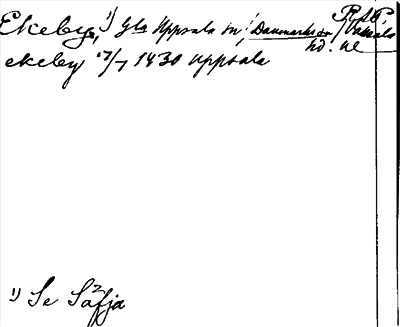 Ekeby, 1) Gla Uppsala sn, Danmarks sn, Vaksala
hd. Ul
ekeby 17/7 1430 Uppsala
1) Se Säfja